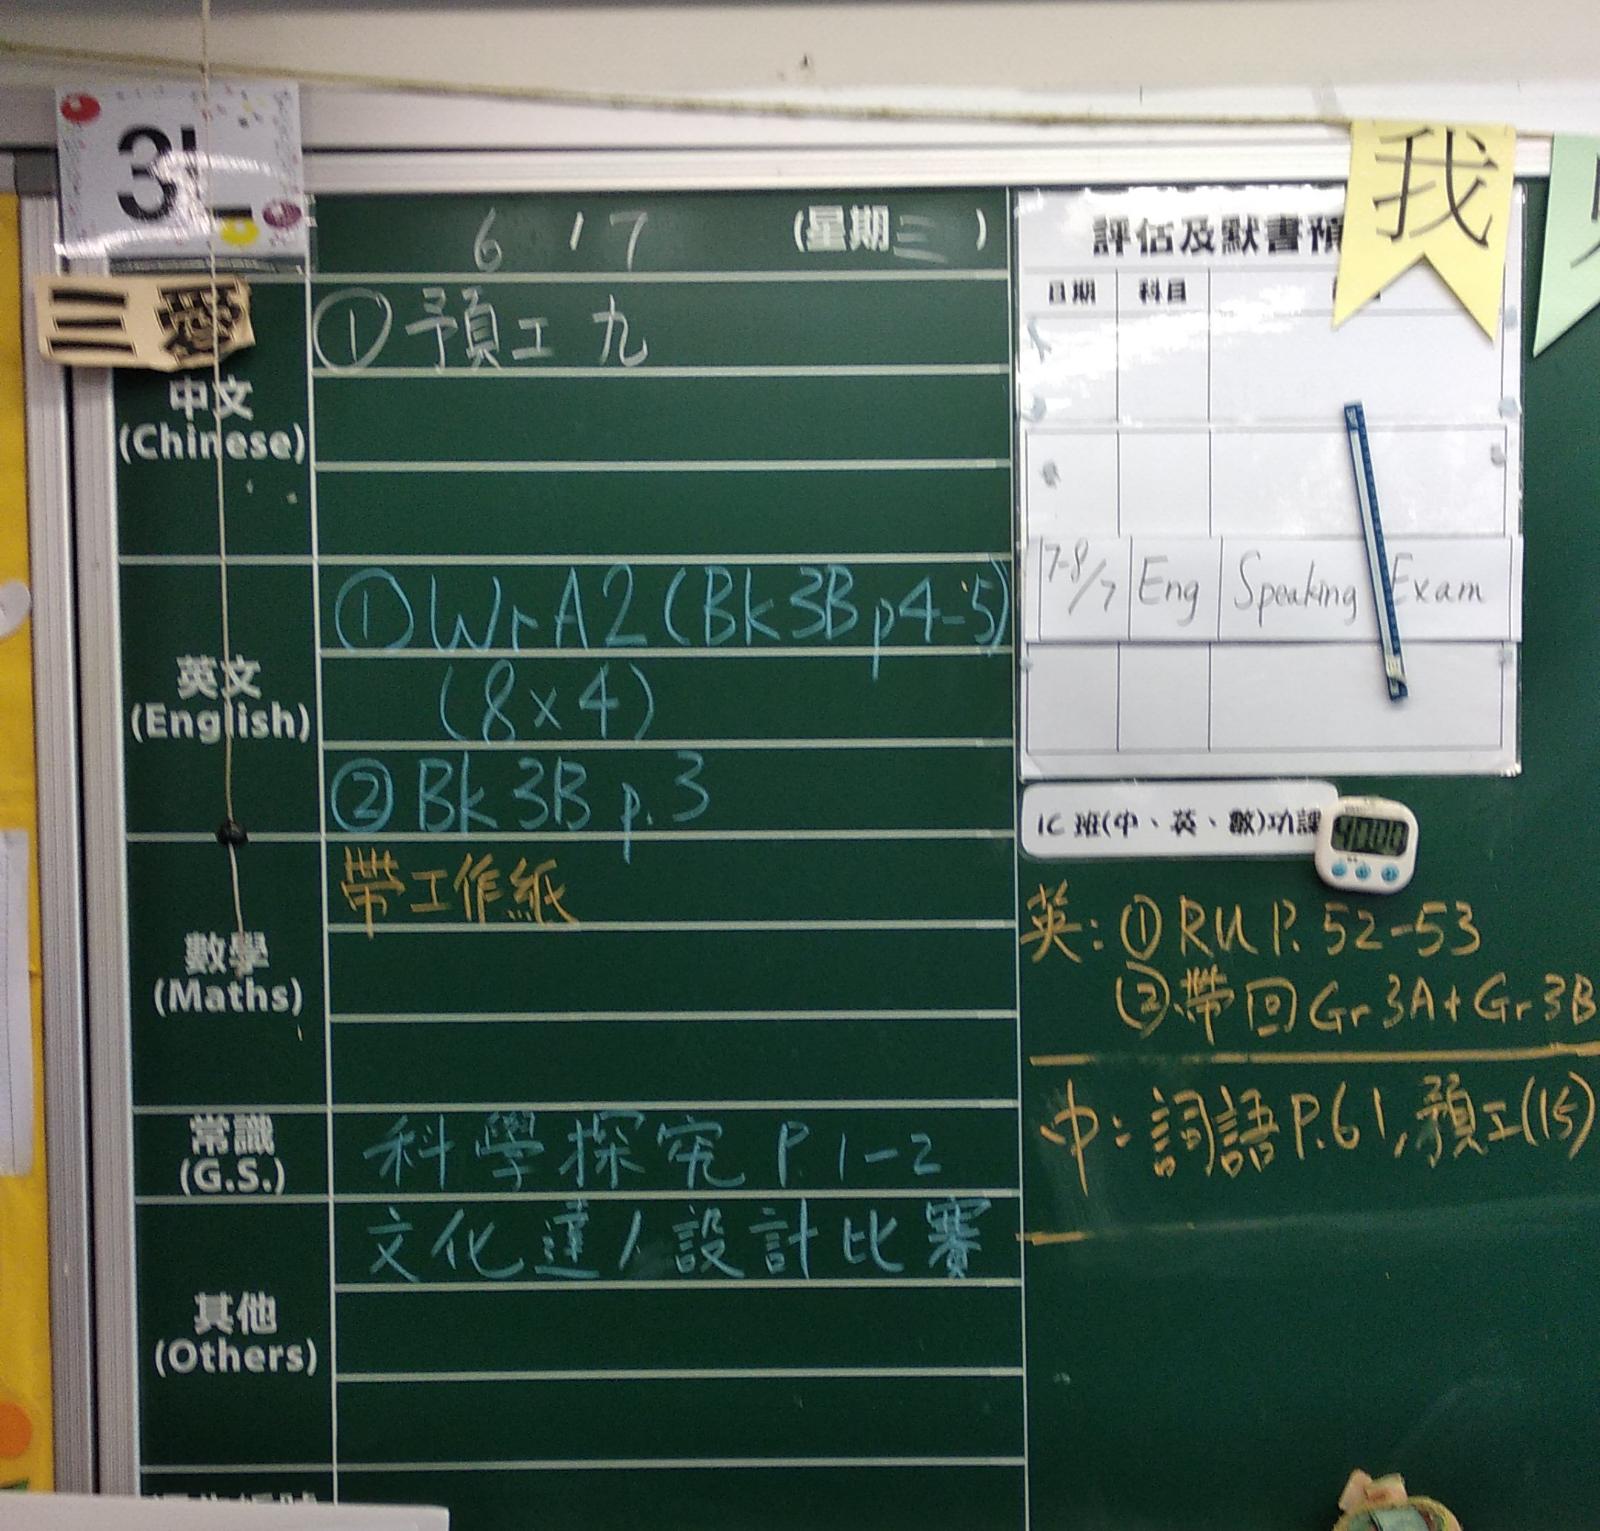 3L
三愛
6 / 7 (星期三)
中文
(Chinese)
① 預工 九
英文
(English)
① Wr A2 (Bk 3B p4-5)
(8×4)
② Bk 3B p. 3
數學
(Maths)
帶工作紙
常識
(G.S.)
科學探究 P.1-2
其他
(Others)
文化達人設計比賽
我
評估及默書預
日期 科目
7-8/7 Eng Speaking Exam
IC 班(中、英、數)功課
40:00
英: ① RU P. 52-53
② 帶回 Gr 3A + Gr 3B
中: 詞語 P.61, 預工(15)